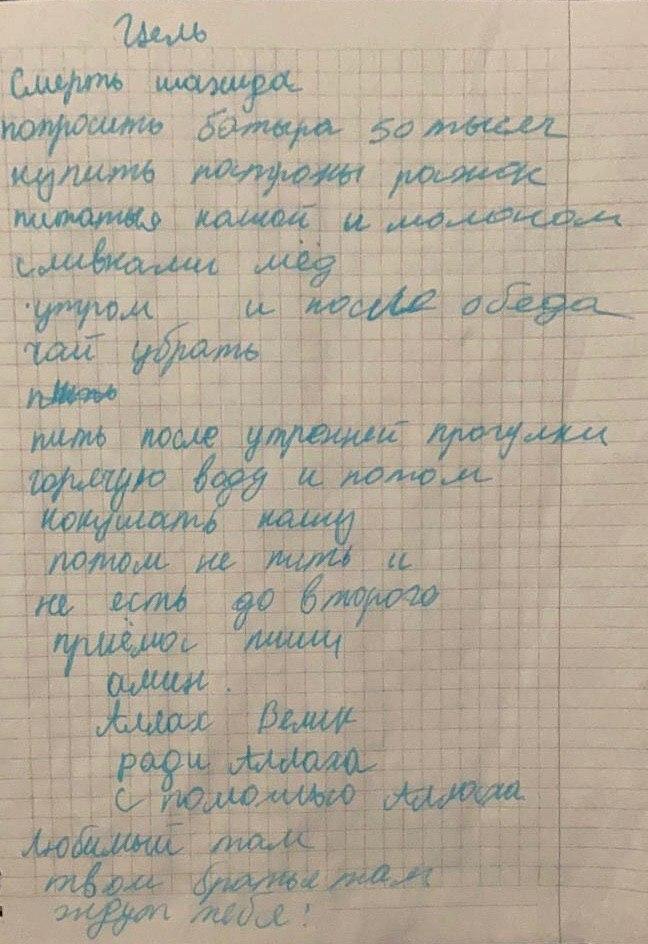 Цель
Смерть шахида
попросить батыра 50 тысяч
купить патроны рожок
питаться кашой и молоком
сливками мёд
утром и после обеда
чай убрать
пить после утренней прогулки
горячую воду и потом
покушать кашу
потом не пить и
не есть до второго
приёма пищи
амин.
Аллах Велик
ради Аллаха
с помощью Аллаха
любимый там
твои братья там
ждут тебя!